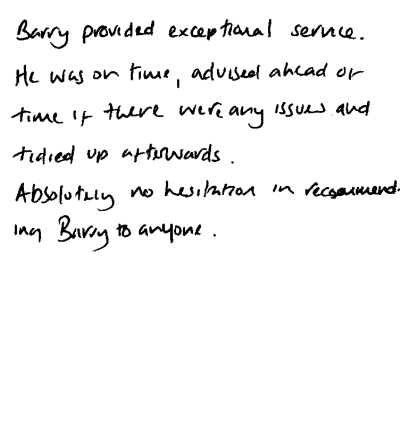 Barry provided exceptional service.
He was on time, advised ahead of
time if there were any issues and
tidied up afterwards.
Absolutely no hesitation in recommend-
ing Barry to anyone.